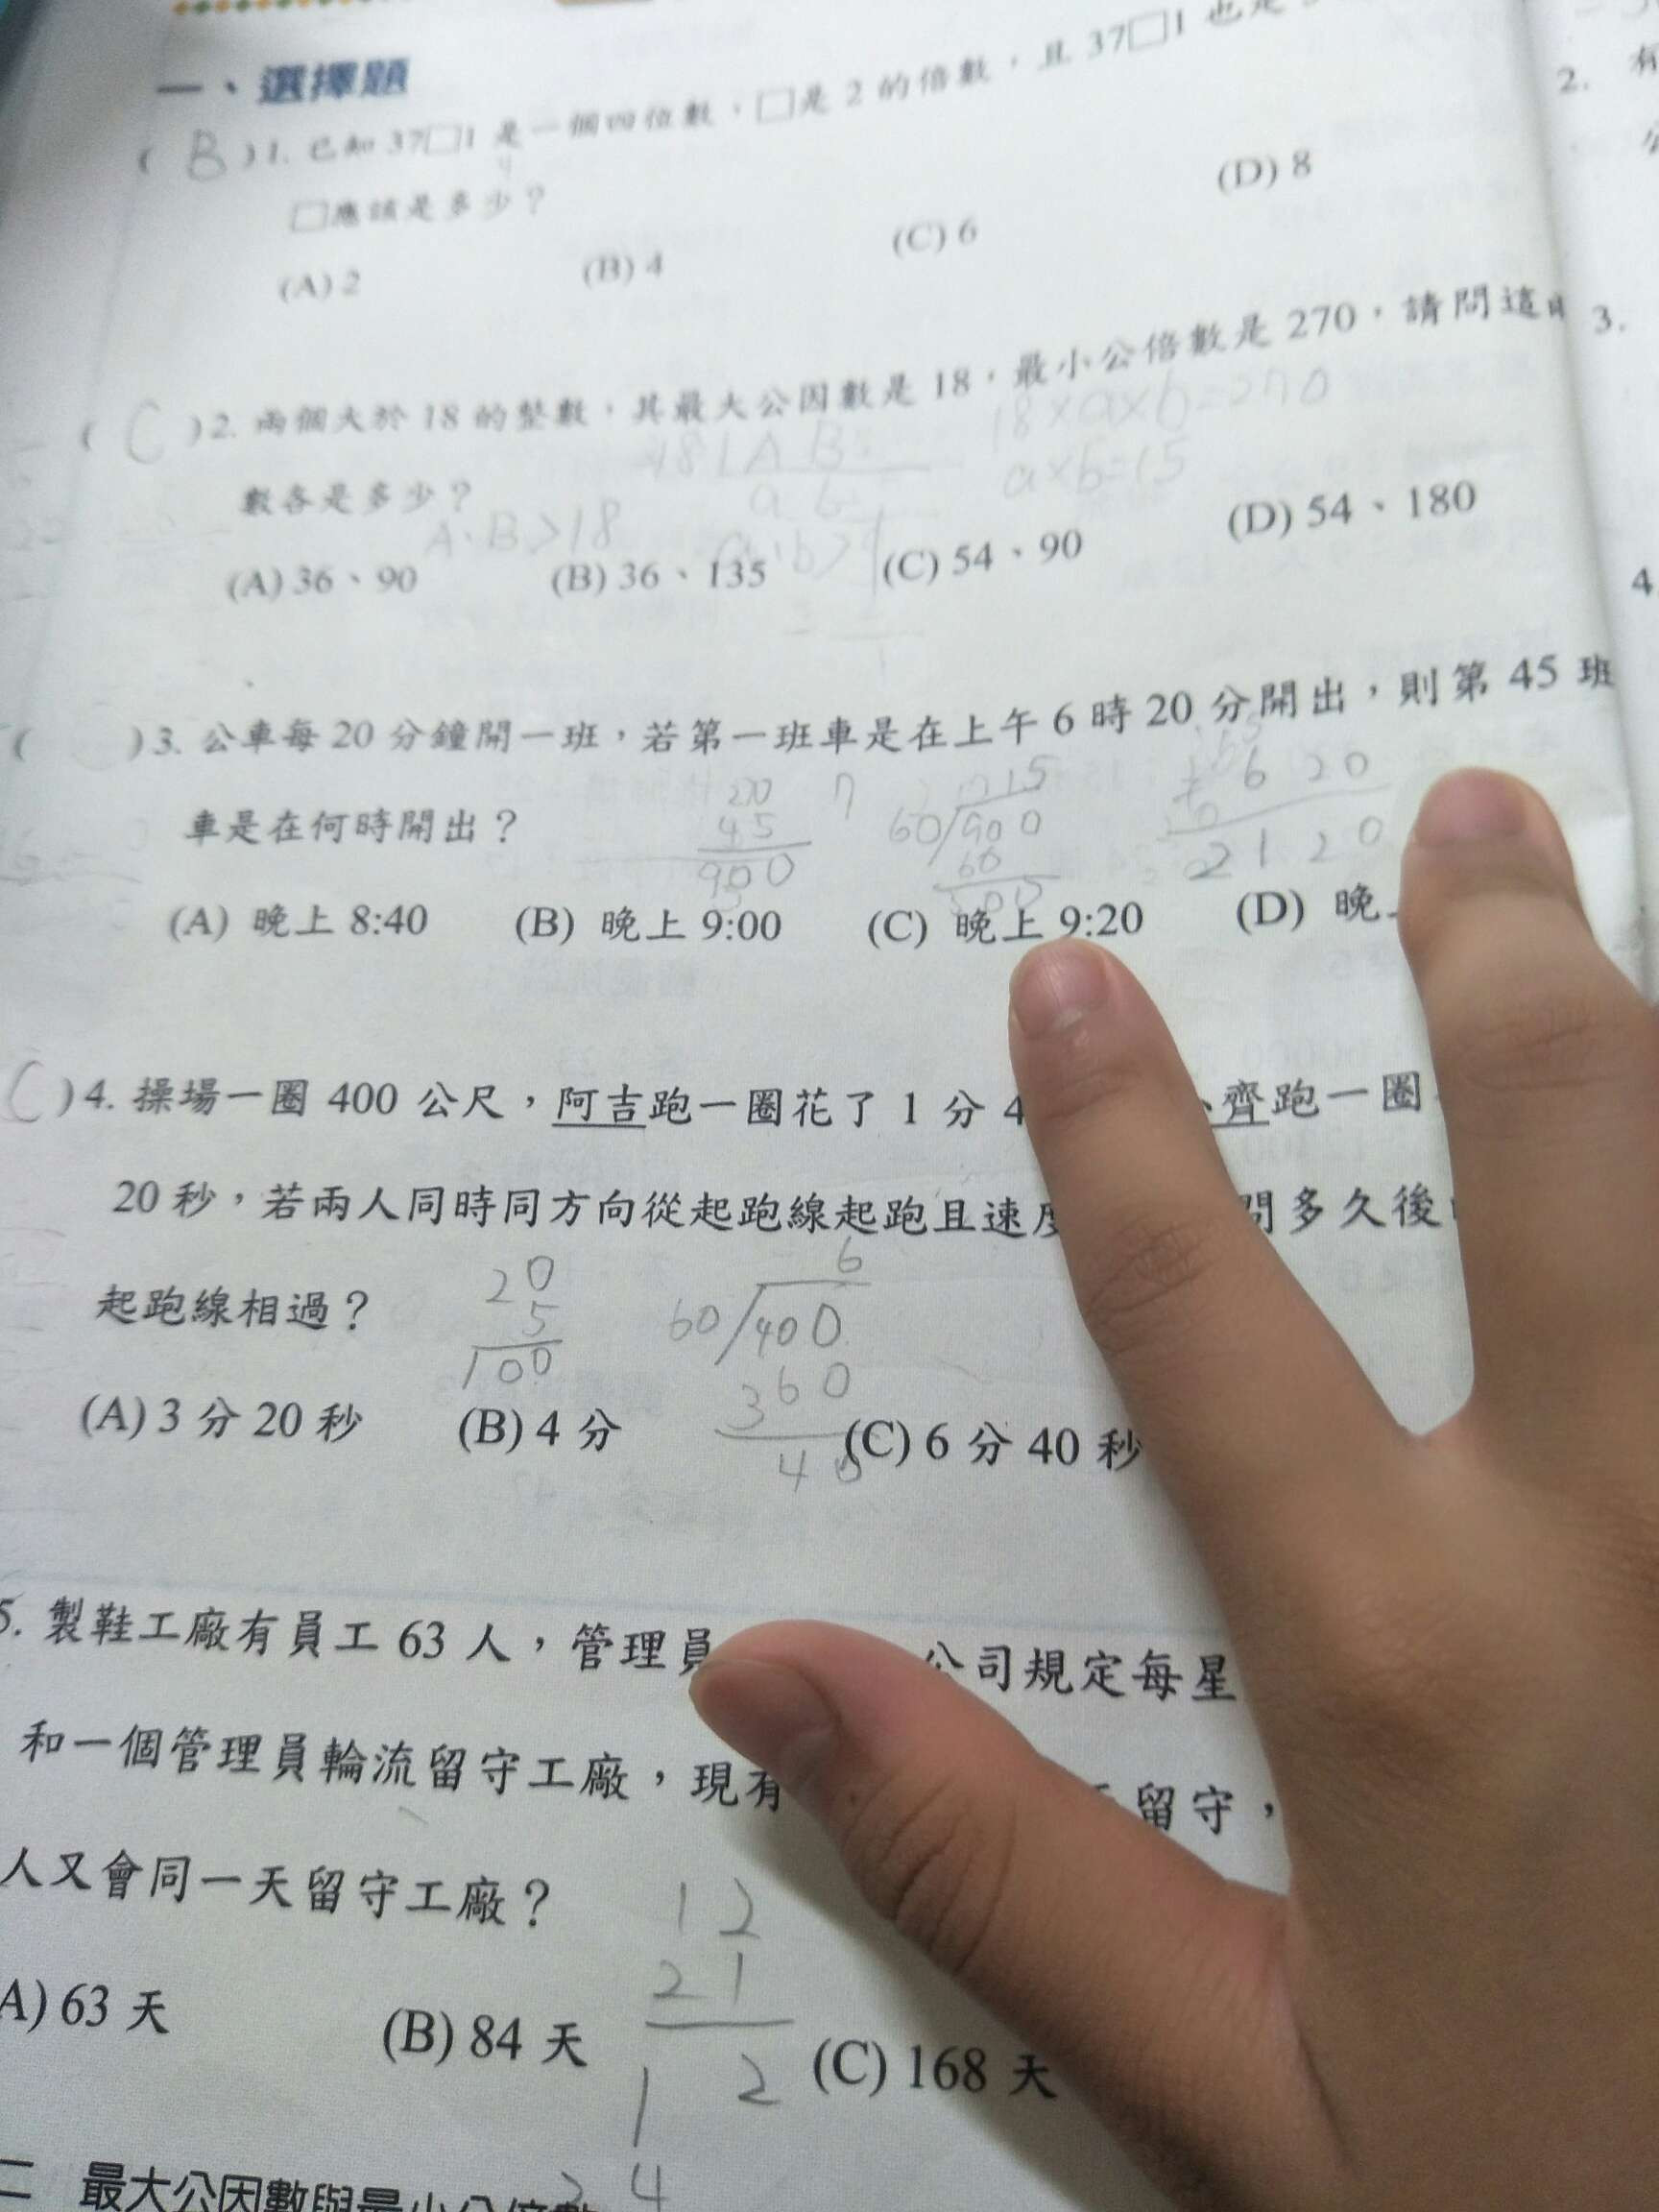 一、選擇題
( B )1. 已知 37□1 是一個四位數,□是 2 的倍數,且 37□1 也是
□應該是多少?
(A) 2 (B) 4 (C) 6 (D) 8
( C )2. 兩個大於 18 的整數,其最大公因數是 18,最小公倍數是 270,請問這
18 A B
a b
18×a×b=270
a×b=15
數各是多少?
A、B>18
a、b>1
(A) 36、90 (B) 36、135 (C) 54、90 (D) 54、180
( )3. 公車每 20 分鐘開一班,若第一班車是在上午 6 時 20 分開出,則第 45 班
車是在何時開出?
20
45
900
7
15
60 900
60
6 20
21 20
(A) 晚上 8:40 (B) 晚上 9:00 (C) 晚上 9:20 (D) 晚
C )4. 操場一圈 400 公尺,阿吉跑一圈花了 1 分 4 齊跑一圈
20 秒,若兩人同時同方向從起跑線起跑且速 問多久後
起跑線相過?
20
5
100
6
60 400
360
40
(A) 3 分 20 秒 (B) 4 分 (C) 6 分 40 秒
5. 製鞋工廠有員工 63 人,管理員 公司規定每星
和一個管理員輪流留守工廠,現有 留守,
人又會同一天留守工廠?
12
21
1 2
2 4
A) 63 天 (B) 84 天 (C) 168 天
最大公因數與最小公倍數
2. 有
3.
4